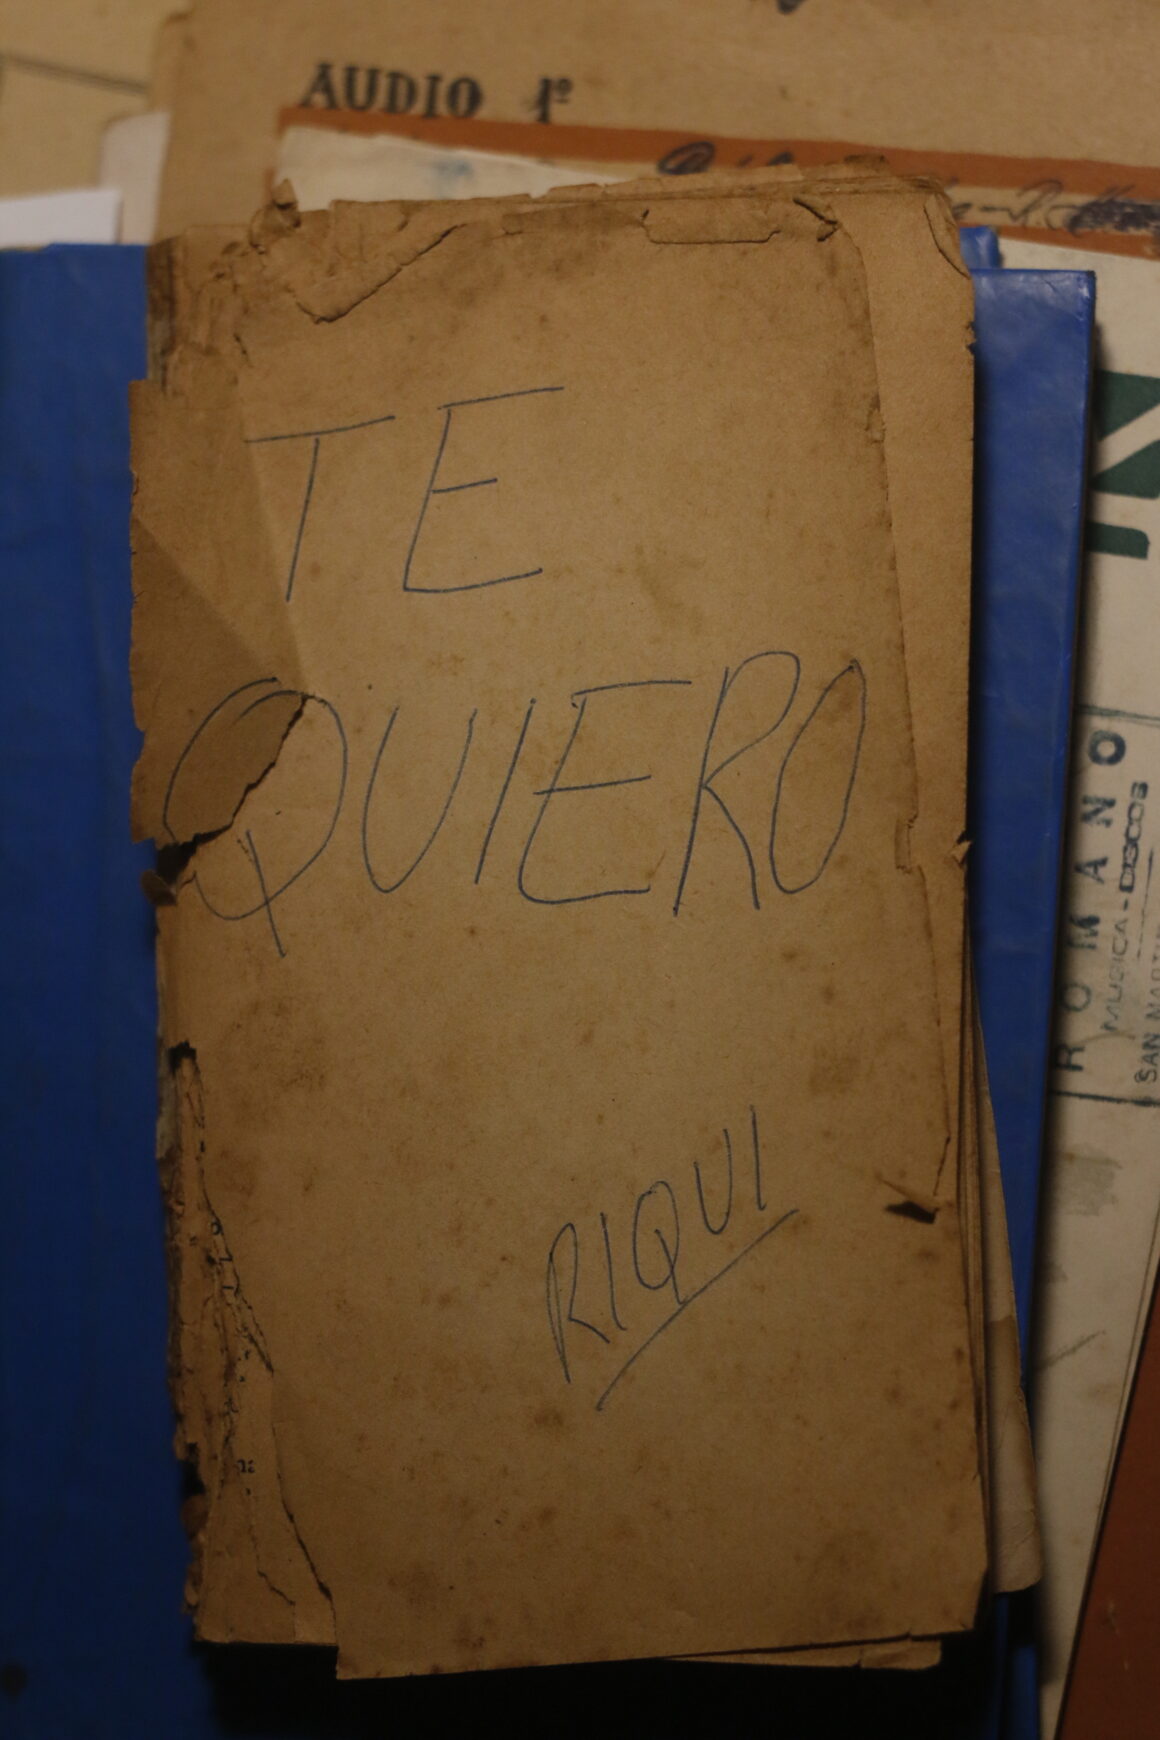 AUDIO 1º
TE
QUIERO
RIQUI
ROMANO
MUSICA - DISCOS
SAN MARTI